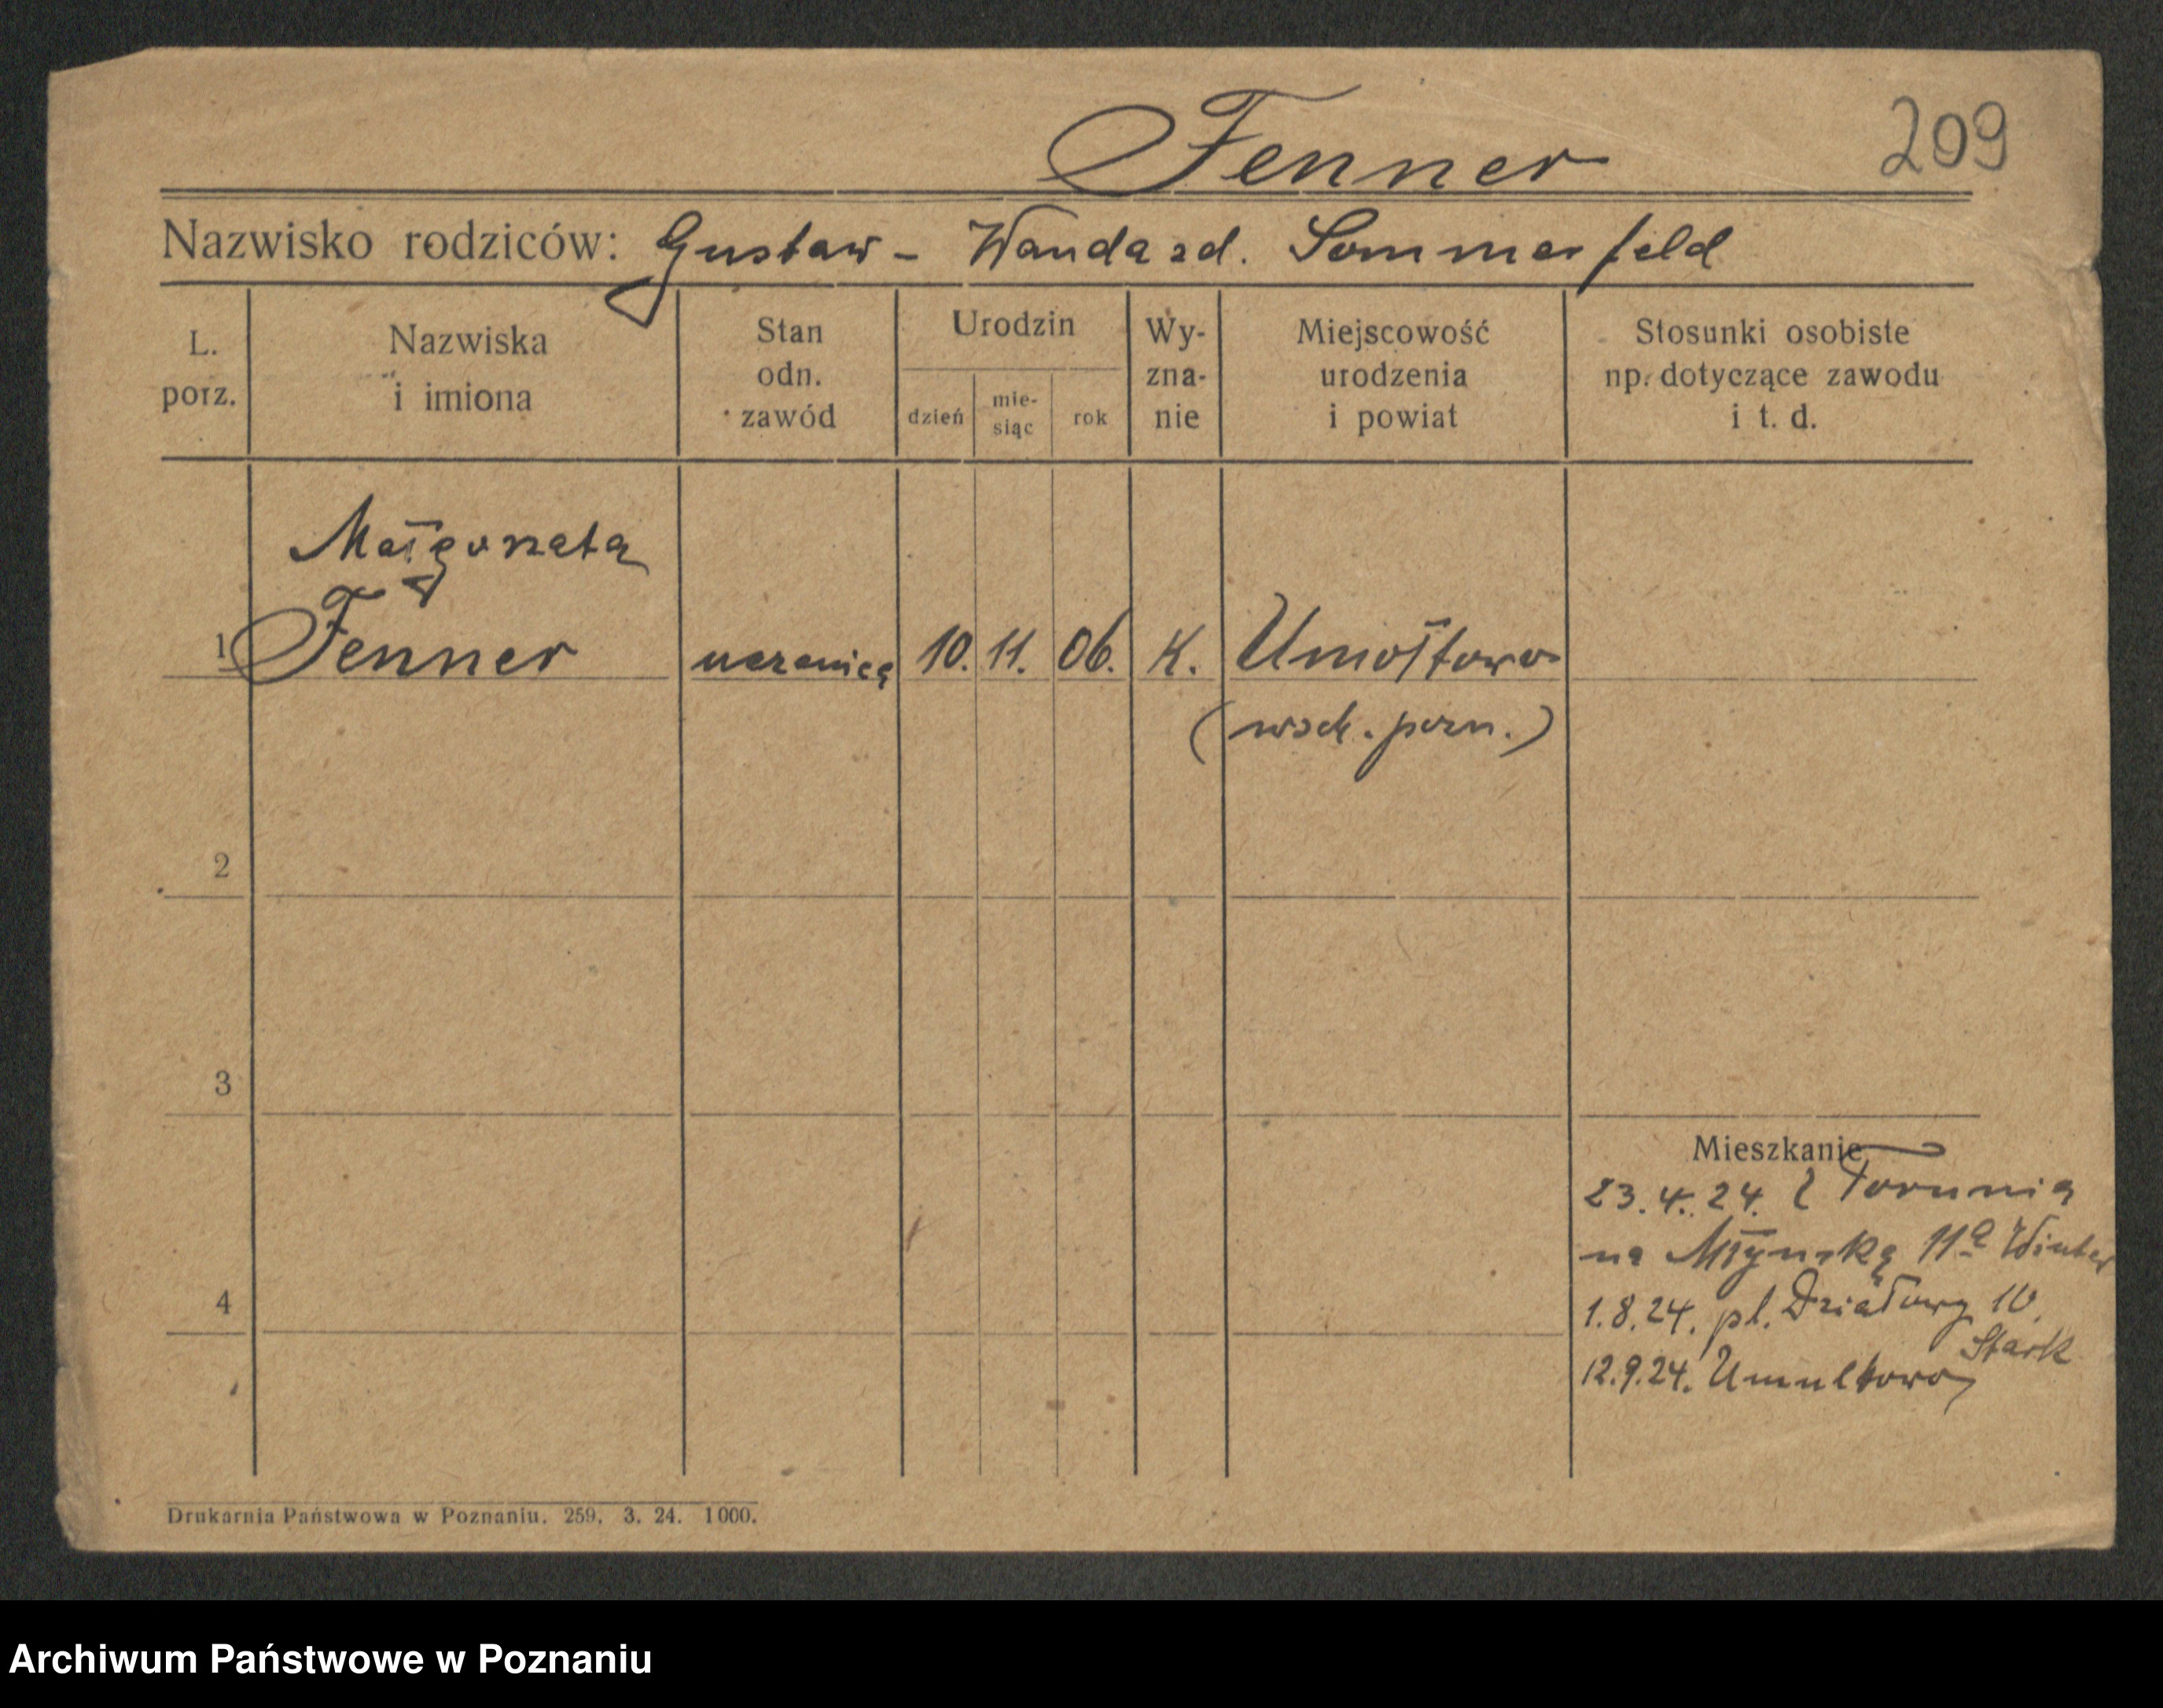 Fenner 209
Nazwisko rodziców: Gustaw - Wanda zd. Sommerfeld
L. porz.
Nazwiska i imiona
Stan odn. zawód
Urodzin
dzień
mie-
siąc
rok
Wy-
zna-
nie
Miejscowość urodzenia i powiat
Stosunki osobiste np. dotyczące zawodu i t. d.
Małgorzata
1 Fenner uczenica 10. 11. 06. K. Umołtowo
(wsch. pozn.)
2
3
Mieszkanie
23.4.24. z Torunia
na Młynską 11a Winter
1.8.24. pl. Działowy 10.
Stark
4
12.9.24. Umultowo
Drukarnia Państwowa w Poznaniu. 259. 3. 24. 1000.
Archiwum Państwowe w Poznaniu